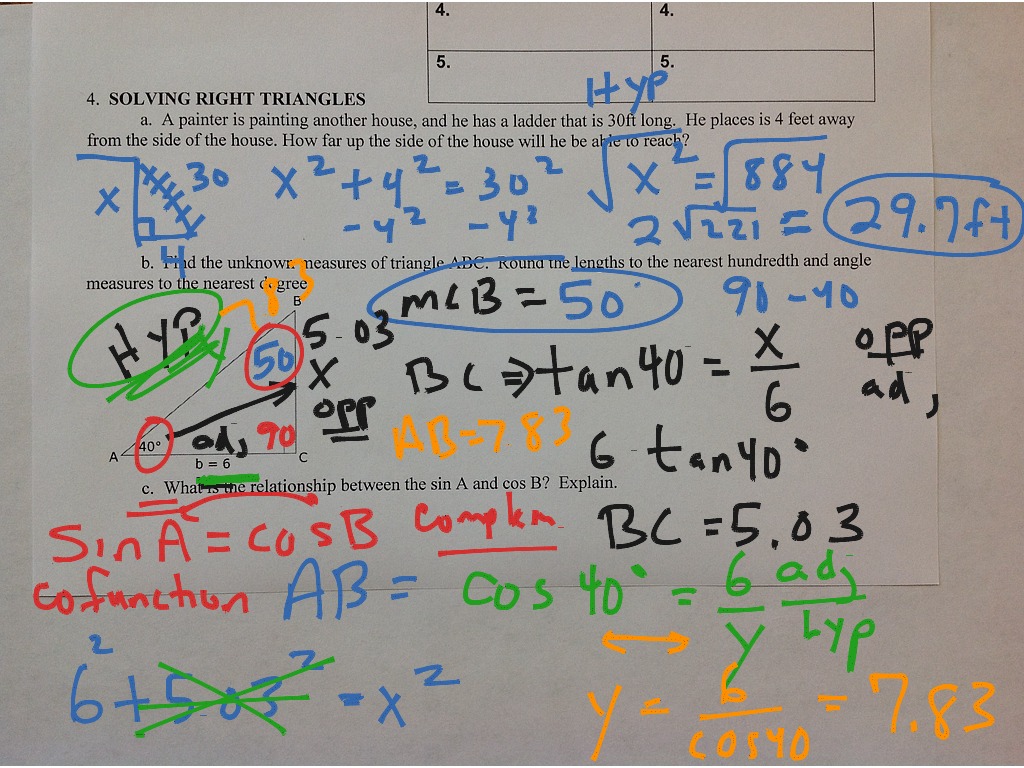 4. 4.
5. 5.
Hyp
4. SOLVING RIGHT TRIANGLES
a. A painter is painting another house, and he has a ladder that is 30ft long. He places is 4 feet away
from the side of the house. How far up the side of the house will he be able to reach?
x 30 x² + 4² = 30² √x² = √884
4 -4² -4² 2√221 = 29.7ft
b. Find the unknown measures of triangle ABC. Round the lengths to the nearest hundredth and angle
measures to the nearest degree
7.83 B m∠B = 50° 90 - 40
Hyp 50 5.03 x BC ⇒ tan40 = x/6 opp adj
opp
AB=7.83 6 tan40°
A 40° adj 90 C
b = 6
c. What is the relationship between the sin A and cos B? Explain.
Sin A = cos B Complem. BC = 5.03
cofunction AB = cos 40° = 6/y adj/hyp
6² + 5.03² = x² y = 6/cos40 = 7.83